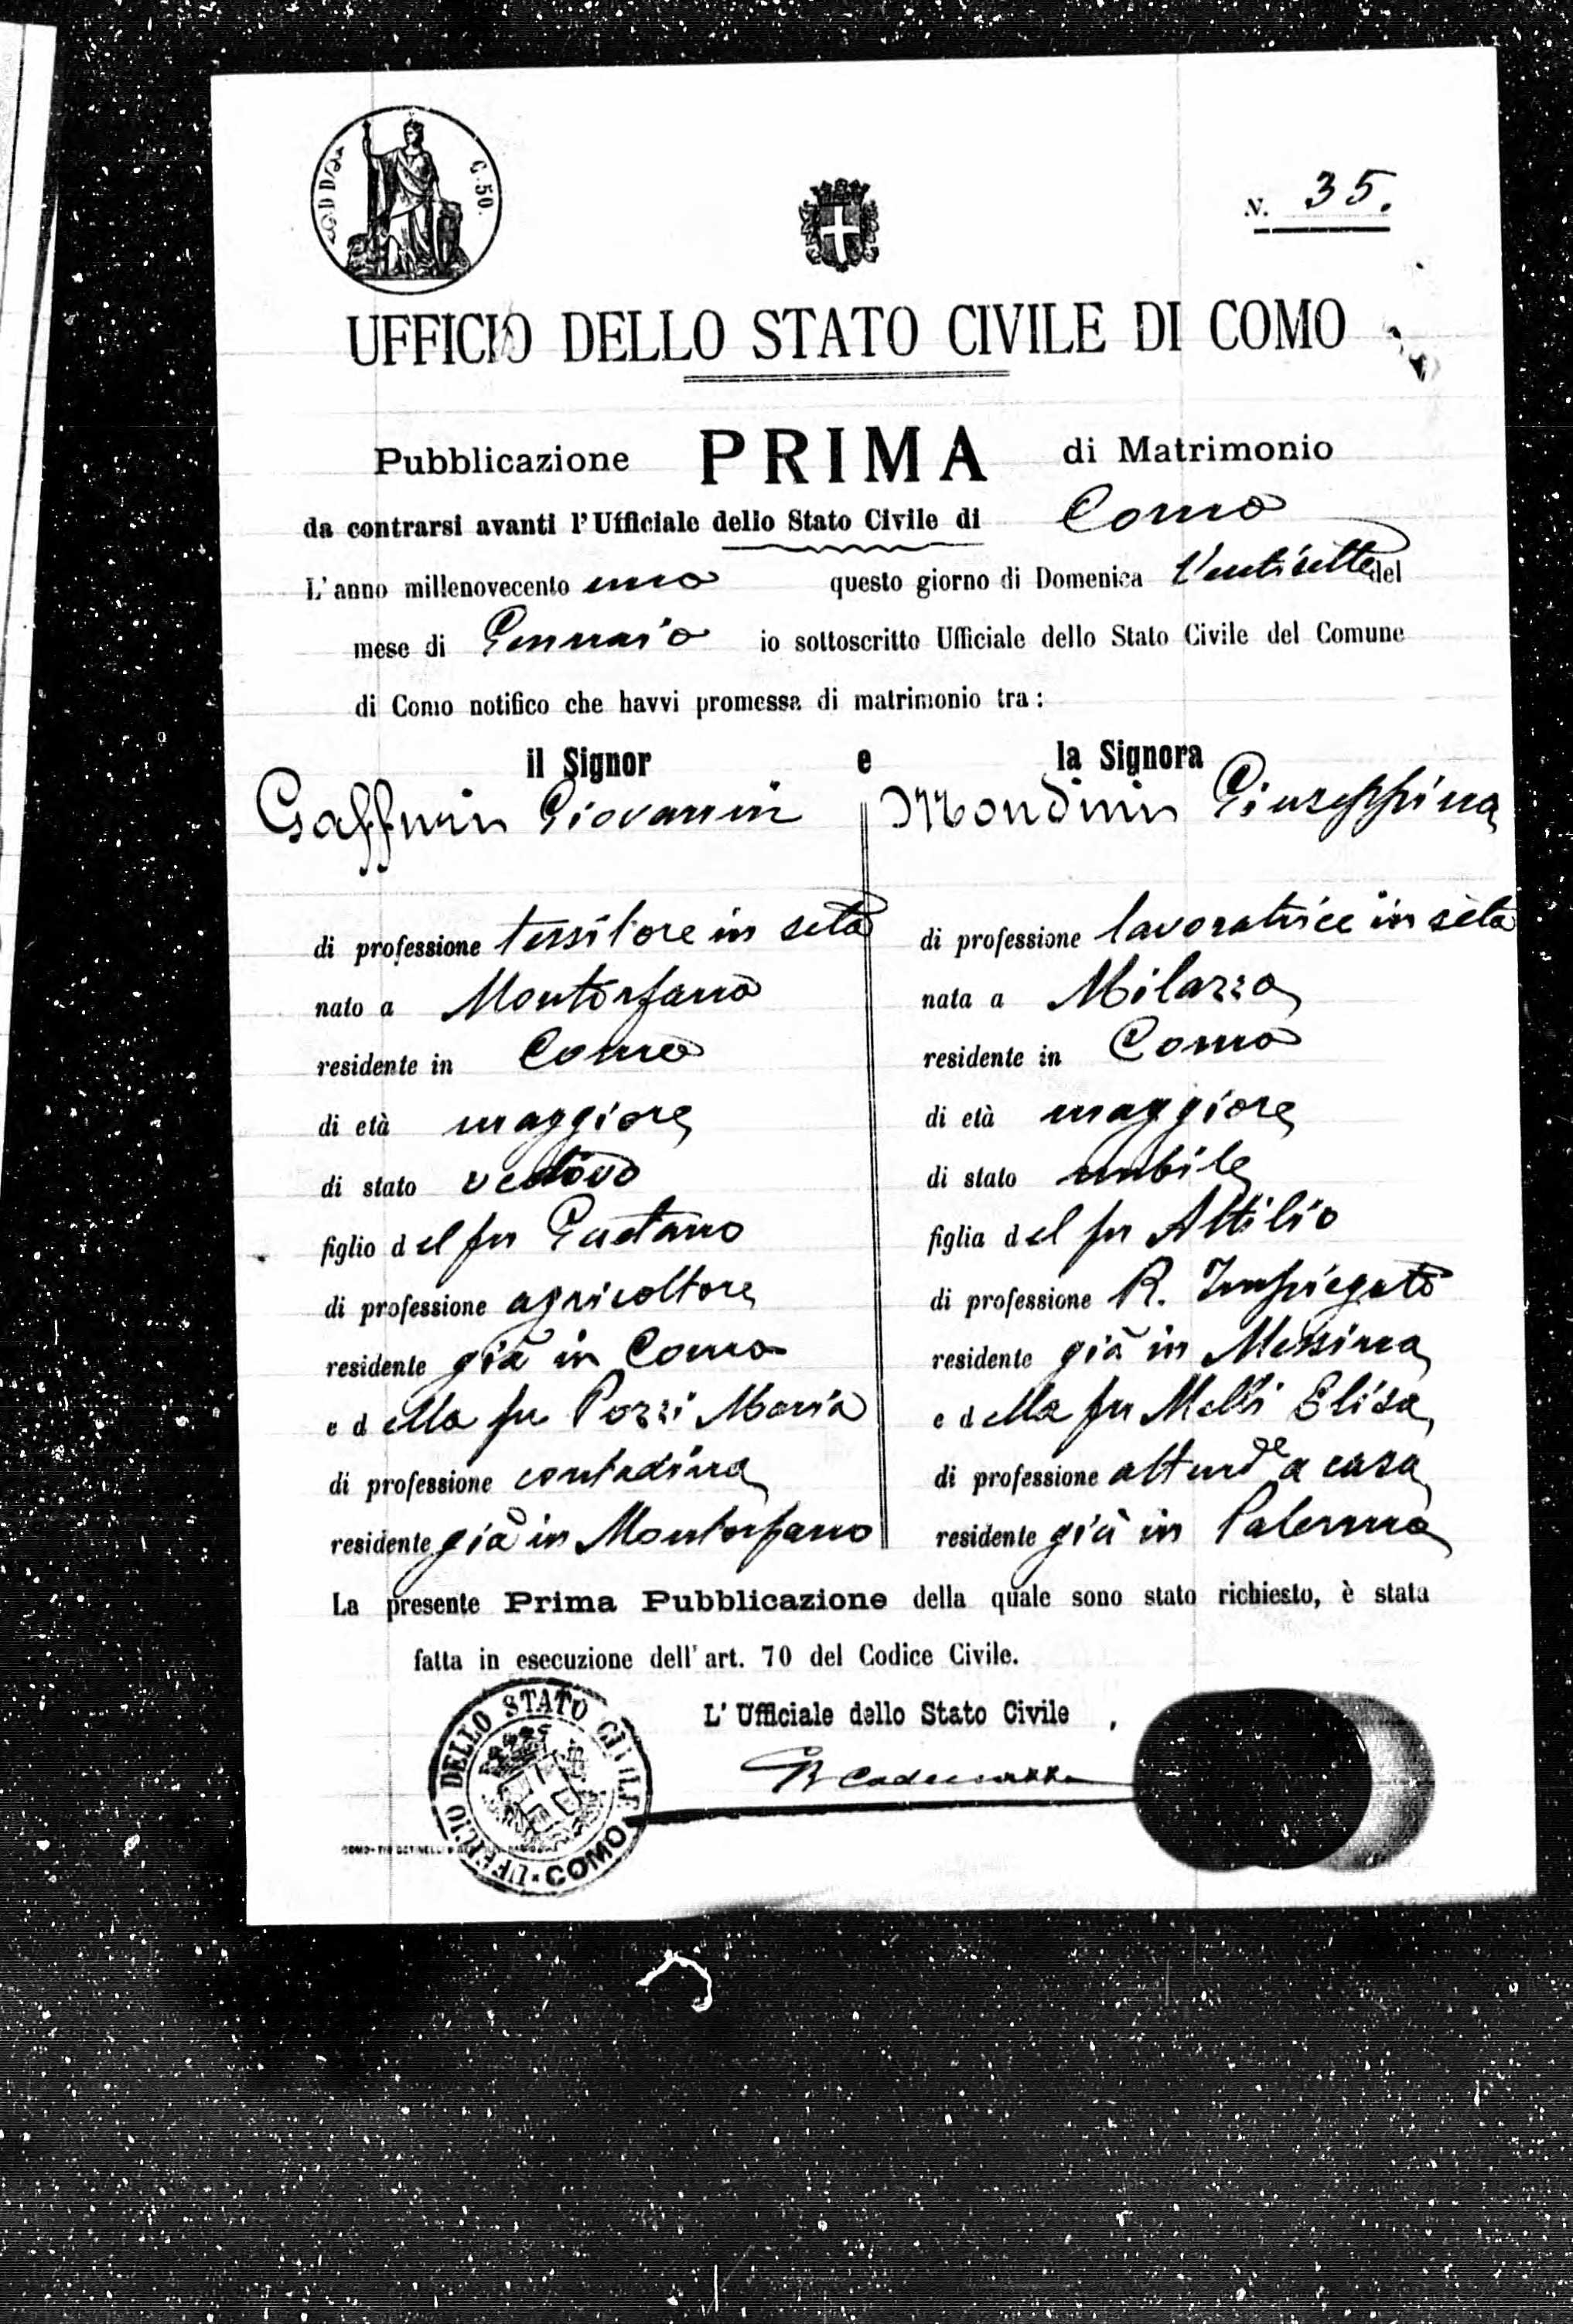 C. 50.
N. 35.
UFFICIO DELLO STATO CIVILE DI COMO
Pubblicazione PRIMA di Matrimonio
da contrarsi avanti l'Ufficiale dello Stato Civile di Como
L'anno millenovecento uno questo giorno di Domenica Ventisette del
mese di Gennaio io sottoscritto Ufficiale dello Stato Civile del Comune
di Como notifico che havvi promessa di matrimonio tra:
il Signor e la Signora
Gaffuri Giovanni
di professione tessitore in seta
nato a Montorfano
residente in Como
di età maggiore
di stato vedovo
figlio del fu Gaetano
di professione agricoltore
residente già in Como
e della fu Pozzi Maria
di professione contadina
residente già in Montorfano
Mondini Giuseppina
di professione lavoratrice in seta
nata a Milazzo
residente in Como
di età maggiore
di stato nubile
figlia del fu Attilio
di professione R. Impiegato
residente già in Messina
e della fu Elisa
di professione attend.de a casa
residente già in Palermo
La presente Prima Pubblicazione della quale sono stato richiesto, è stata
fatta in esecuzione dell'art. 70 del Codice Civile.
L'Ufficiale dello Stato Civile
UFFICIO DELLO STATO CIVILE · COMO